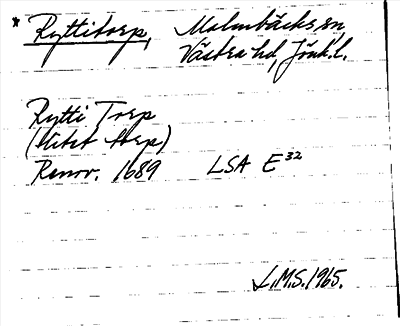 * Ryttitorp, Malmbäcks sn,
Västra hd, Jönk.l.
Rytti Torp
(Utsÿ torp)
Renov. 1689 LSA E³²
L.M.S. 1965.